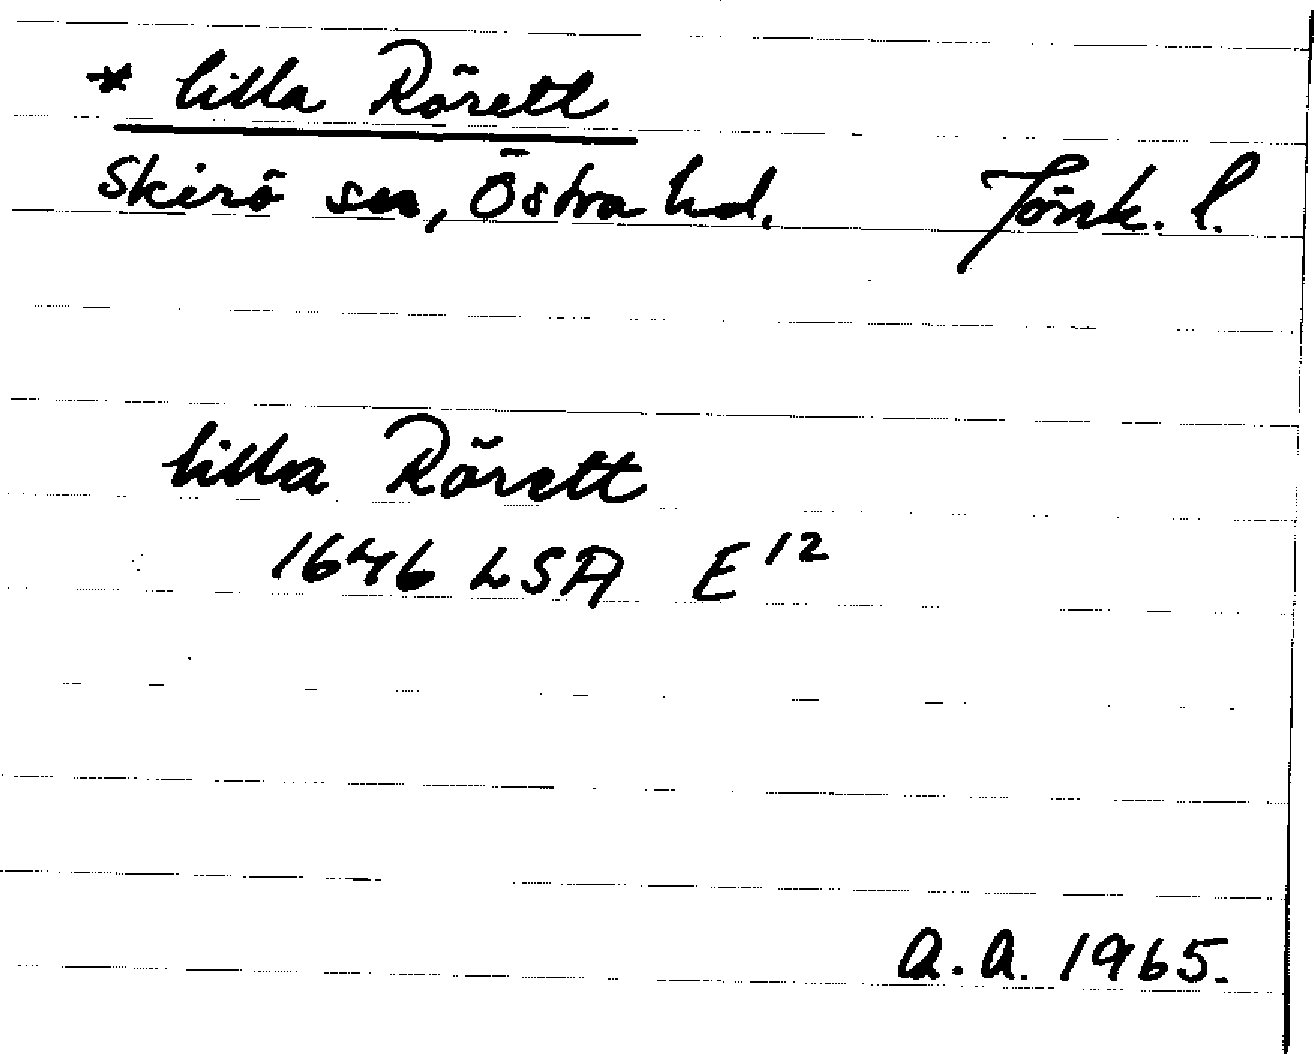 * lilla Rörett
Skirö sn, Östra hd. Jönk. l.
lilla Rörett
1646 LSA E 12
A.A. 1965.